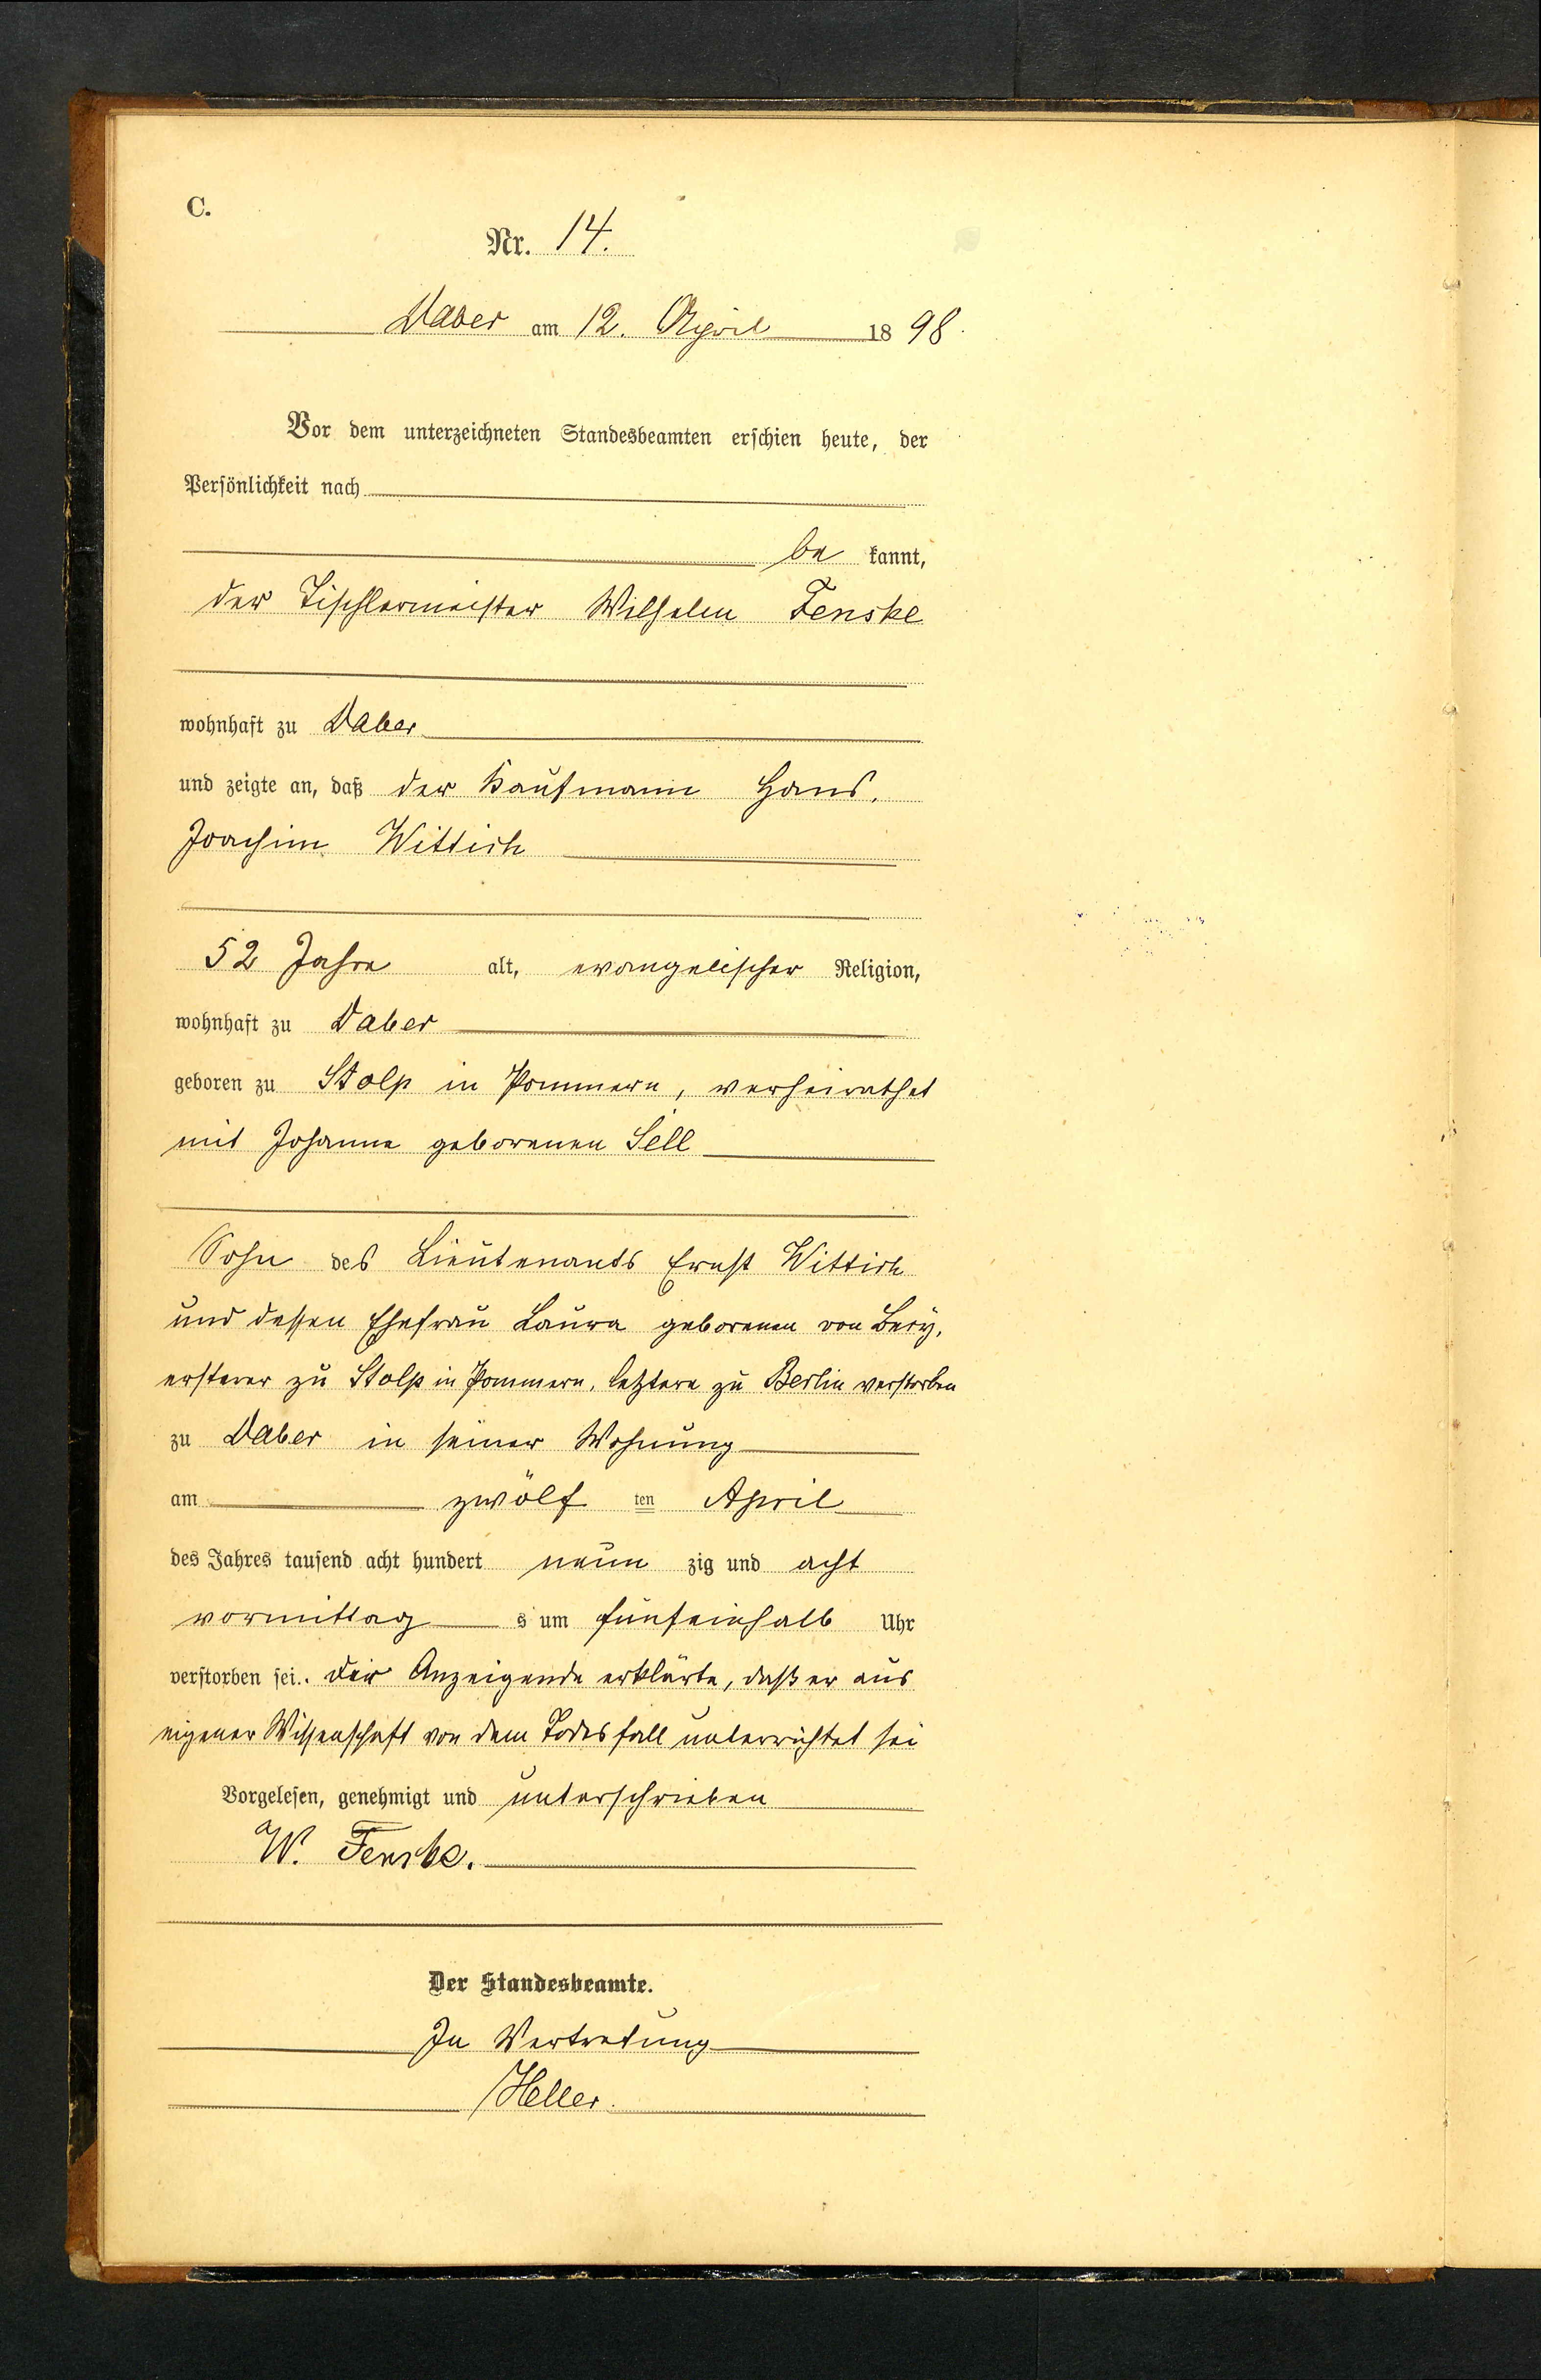 C.
Nr. 14.
Daber am 12. April 1898.
Vor dem unterzeichneten Standesbeamten erschien heute, der
Persönlichkeit nach
be kannt,
der Tischlermeister Wilhelm Fenske
wohnhaft zu Daber
und zeigte an, daß der Kaufmann Hans,
Joachim Wittich
52 Jahre alt, evangelischer Religion,
wohnhaft zu Daber
geboren zu Stolp in Pommern, verheirathet
mit Johanna geborenen Sell
Sohn des Lieutenants Ernst Wittich
und dessen Ehefrau Laura geborenen von
ersterer zu Stolp in Pommern, letztere zu Berlin verstorben
zu Daber in seiner Wohnung
am zwölf ten April
des Jahres tausend acht hundert neun zig und acht
vormittag s um fünfeinhalb Uhr
verstorben sei. Der Anzeigende erklärte, daß er aus
eigener Wissenschaft von dem Todesfall unterrichtet sei
Vorgelesen, genehmigt und unterschrieben
W. Fenske.
Der Standesbeamte.
In Vertretung
Heller.